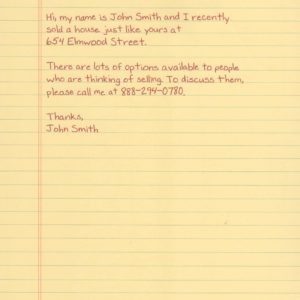 Hi, my name is John Smith and I recently
sold a house just like yours at
654 Elmwood Street.
There are lots of options available to people
who are thinking of selling. To discuss them,
please call me at 888-294-0780.
Thanks,
John Smith